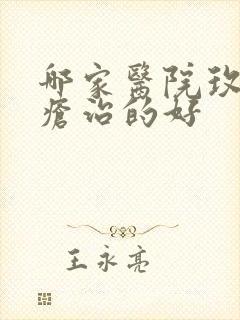 哪家醫院玫
瘡治的好
王永亮